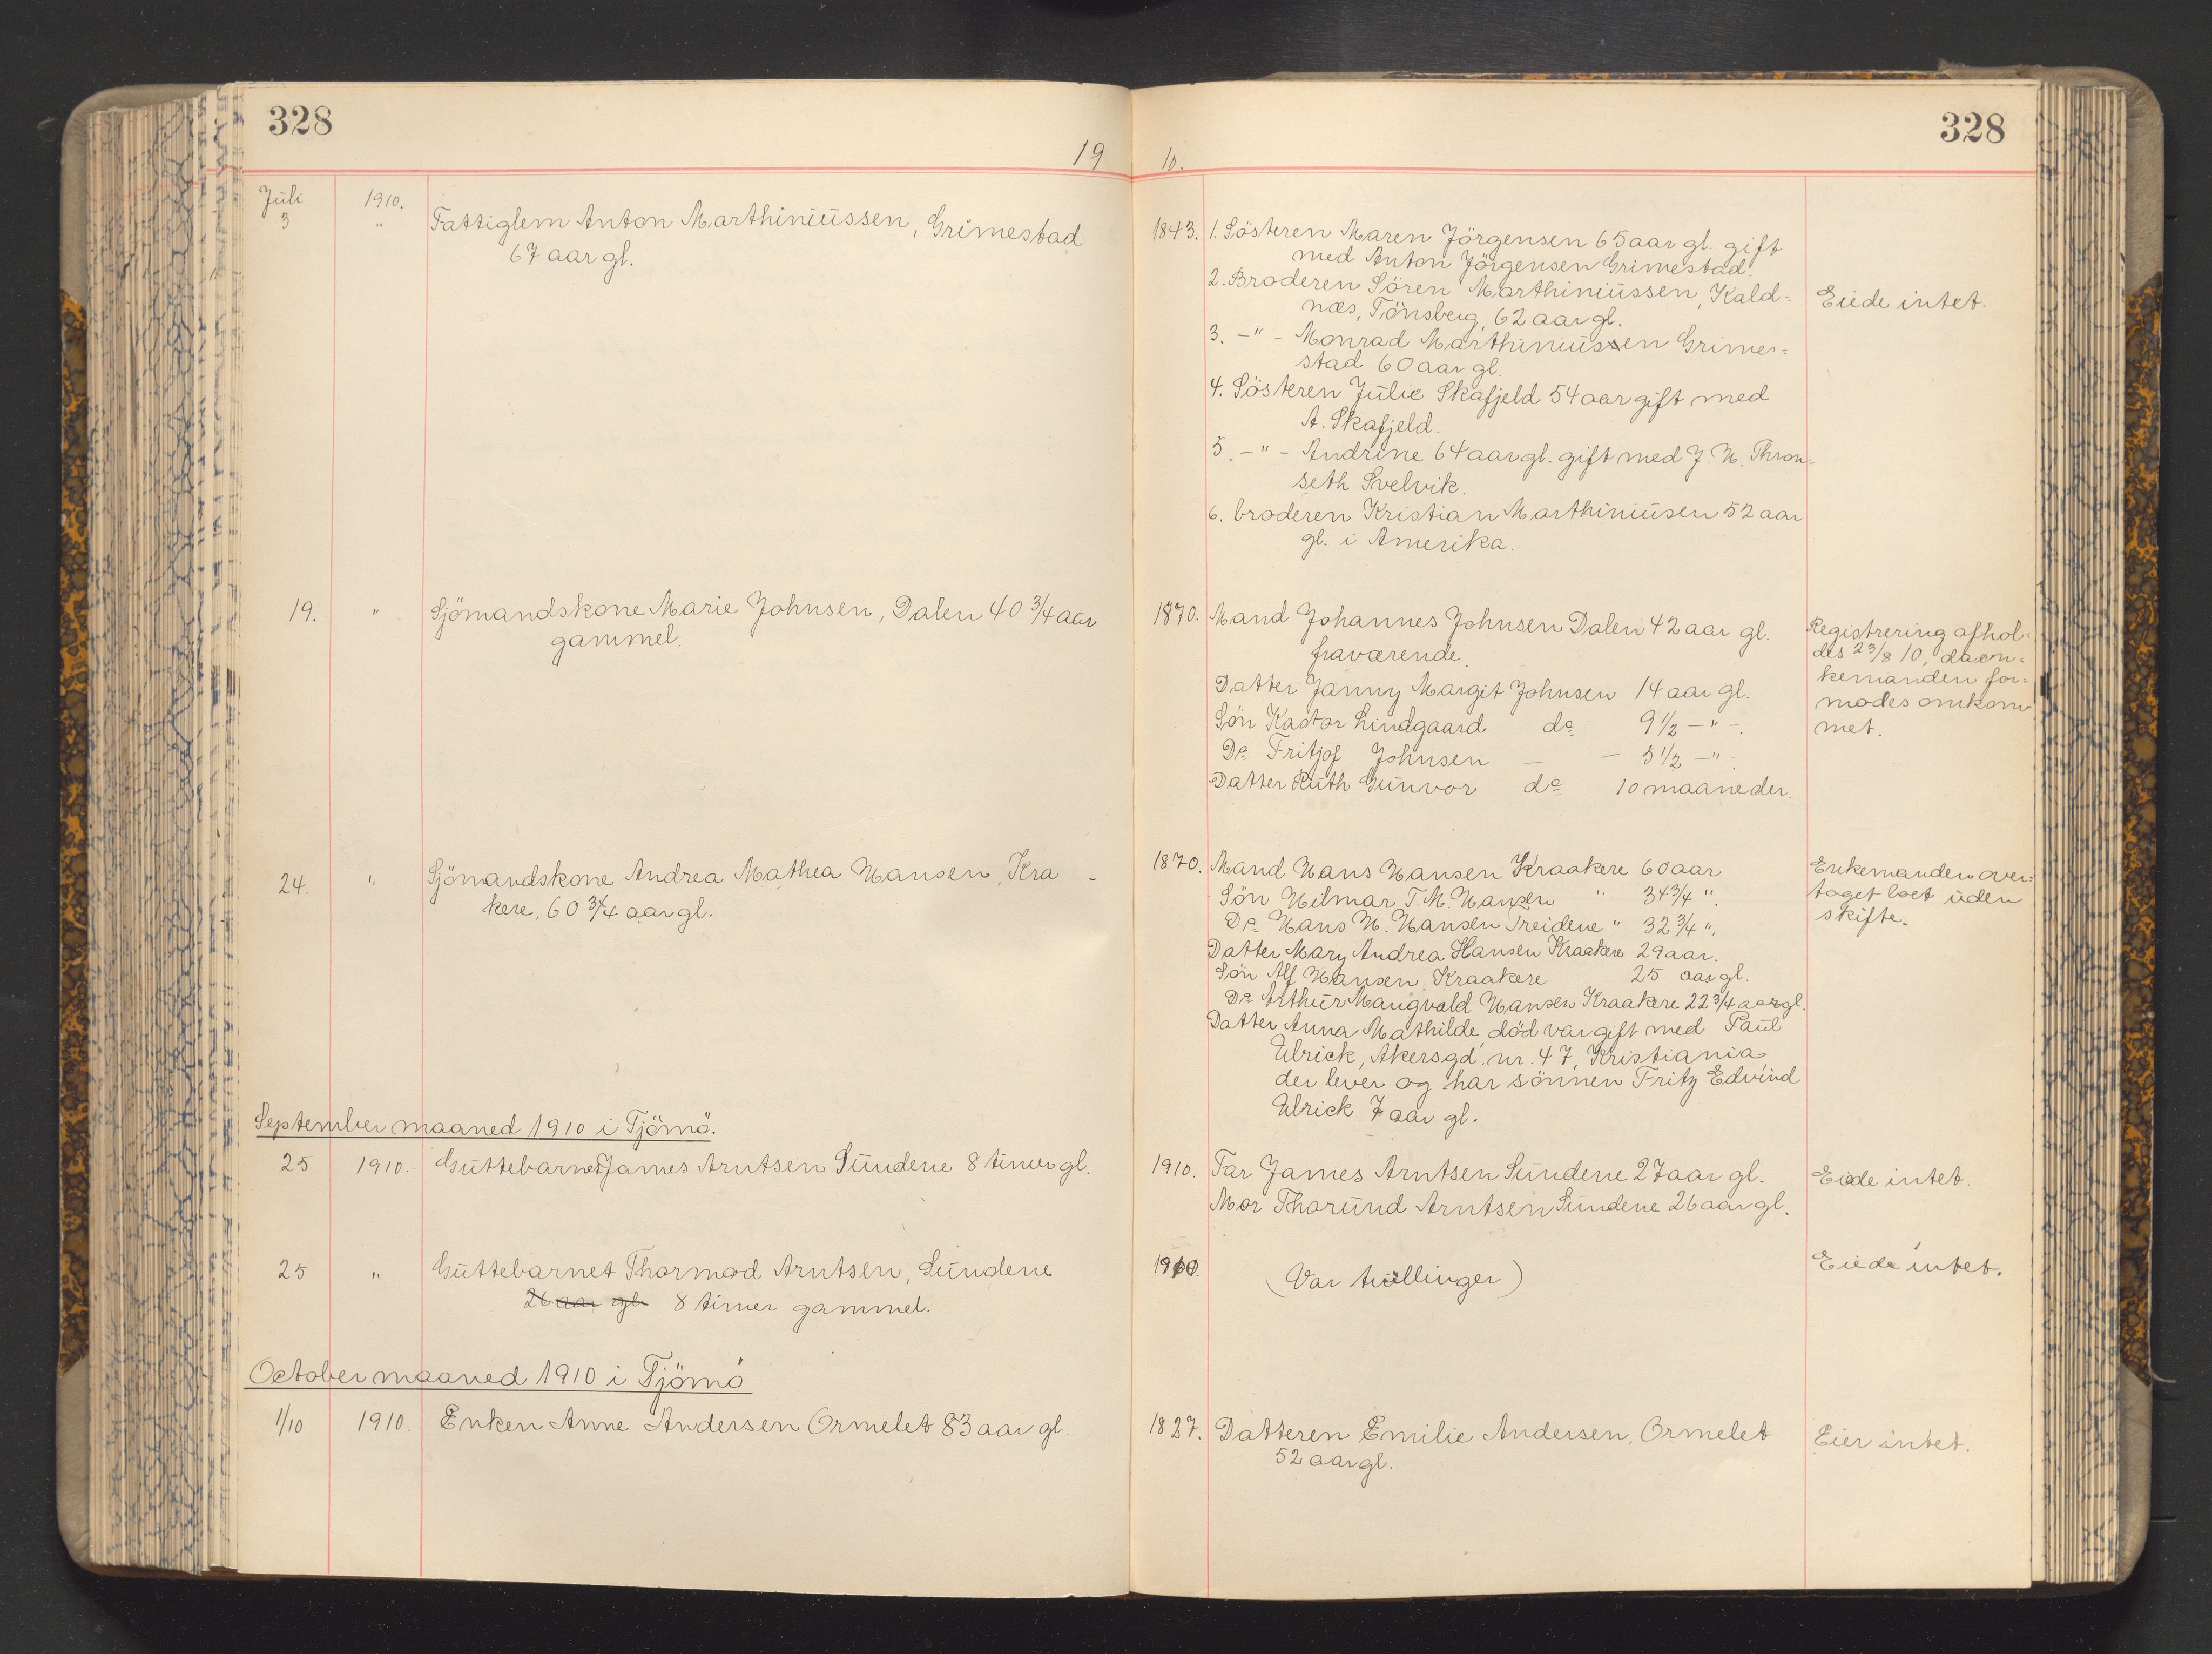 328
328
19 10.
Juli 1910.
3 " Fattiglem Anton Marthiniussen, Grimestad
67 aar gl.
1843. 1. Sösteren Maren Jörgensen 65 aar gl. gift
med Anton Jörgensen Grimestad.
2. Broderen Sören Marthiniussen, Kald=
næs, Tönsberg, 62 aar gl.
3. -"- Monrad Marthiniussen Grime=
stad 60 aar gl.
4. Sösteren Julie Skafjeld 54 aar gift med
A. Skafjeld.
5. -"- Andrine 64 aar gl. gift med J. N. Thron=
seth Svelvik.
6. broderen Kristian Marthiniusen 52 aar
gl. i Amerika.
Eiede intet.
19. " Sjömandskone Marie Johnsen, Dalen 40 3/4 aar
gammel.
1870. Mand Johannes Johnsen Dalen 42 aar gl.
fraværende.
Datter Janny Margit Johnsen 14 aar gl.
Sön Kastor Lindgaard do 9 1/2 -"-.
Do Fritjof Johnsen - - 5 1/2 -"-
Datter Ruth Gunvor do 10 maaneder.
Registrering afhol=
des 23/8 10, da en=
kemanden for=
modes omkom=
met.
24. " Sjömandskone Andrea Mathea Hansen, Kra-
kere, 60 3/4 aar gl.
1870. Mand Hans Hansen Kraakere 60 aar
Sön Hilmar T. M. Hansen " 34 3/4 ".
Do Hans H. Hansen Treidene " 32 3/4 ".
Datter Mary Andrea Hansen Kraakere 29 aar.
Sön Alf Hansen, Kraakere 25 aar gl.
Do Arthur Mangvald Hansen Kraakere 22 3/4 aar gl.
Datter Anna Mathilde, död var gift med Paul
Ulrick, Akersgd. nr. 47, Kristiania
der lever og har sönnen Fritz Edvind
Ulrick 7 aar gl.
Enkemanden over=
taget boet uden
skifte.
September maaned 1910 i Tjömö.
25 1910. Guttebarnet James Arntsen Sundene 8 timer gl.
1910. Far James Arntsen Sundene 27 aar gl.
Mor Thorund Arntsen Sundene 26 aar gl.
Eiede intet.
25 " Guttebarnet Thormod Arntsen, Sundene
26 aar gl. 8 timer gammel.
1910. (Var tvillinger)
Eiede intet.
October maaned 1910 i Tjömö
1/10 1910. Enken Anne Andersen Ormelet 83 aar gl.
1827. Datteren Emilie Andersen, Ormelet
52 aar gl.
Eier intet.